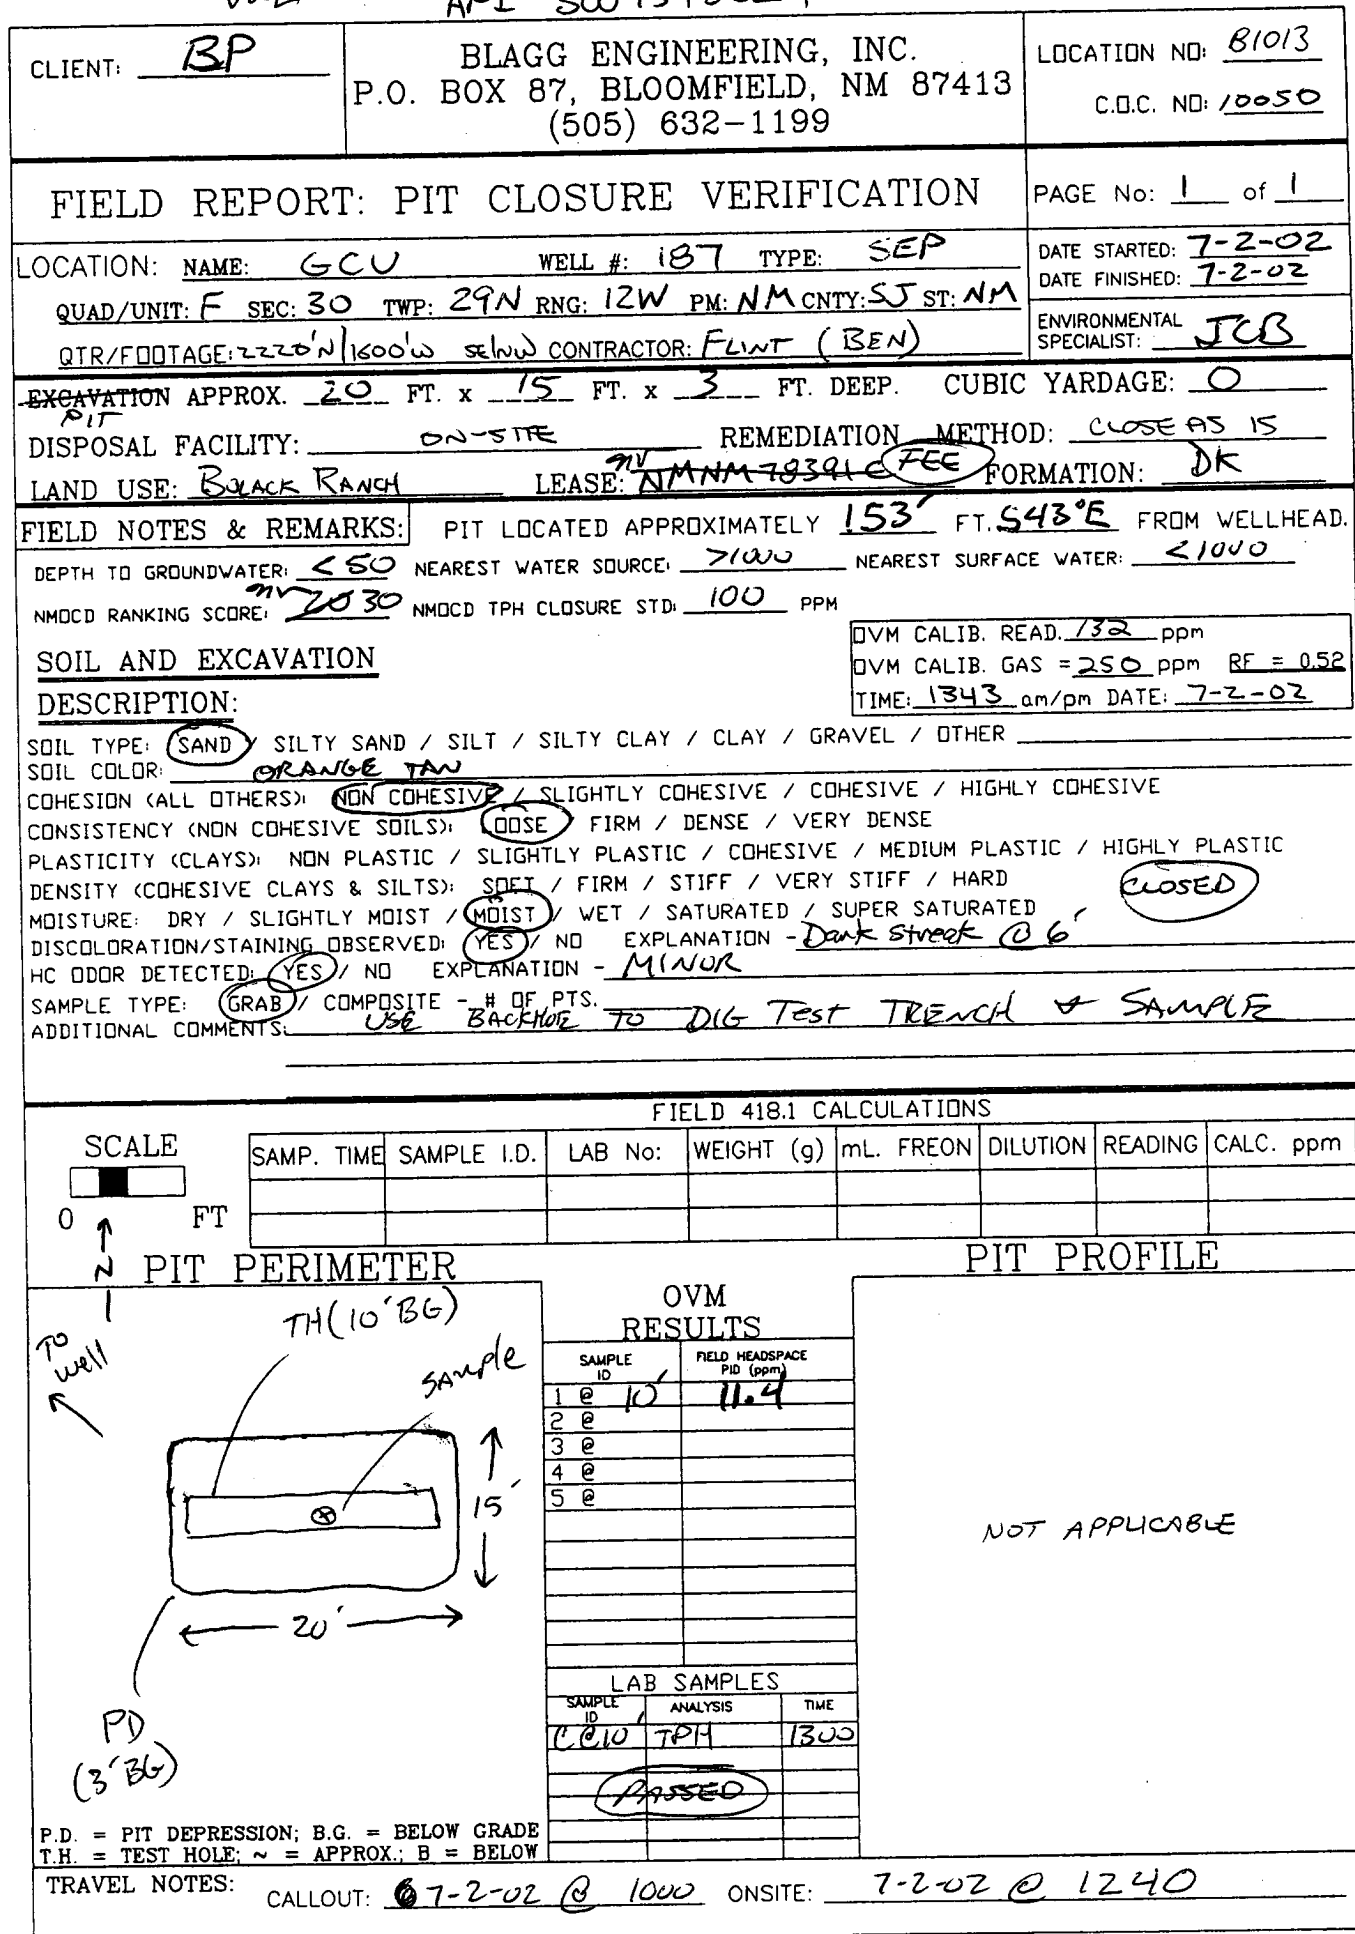 API
CLIENT: BP
BLAGG ENGINEERING, INC.
P.O. BOX 87, BLOOMFIELD, NM 87413
(505) 632-1199
LOCATION NO: B1013
C.O.C. NO: 10050
FIELD REPORT: PIT CLOSURE VERIFICATION
PAGE No: 1 of 1
LOCATION: NAME: GCU WELL #: 187 TYPE: SEP
QUAD/UNIT: F SEC: 30 TWP: 29N RNG: 12W PM: NM CNTY: SJ ST: NM
QTR/FOOTAGE: 2220'N/1600'W SE/NW CONTRACTOR: FLINT (BEN)
DATE STARTED: 7-2-02
DATE FINISHED: 7-2-02
ENVIRONMENTAL SPECIALIST: JCB
EXCAVATION APPROX. 20 FT. x 15 FT. x 3 FT. DEEP. CUBIC YARDAGE: 0
PIT
DISPOSAL FACILITY: ON-SITE REMEDIATION METHOD: CLOSE AS IS
LAND USE: BOLACK RANCH LEASE: NMNM78391C FEE FORMATION: DK
FIELD NOTES & REMARKS: PIT LOCATED APPROXIMATELY 153' FT. S43°E FROM WELLHEAD.
DEPTH TO GROUNDWATER: <50 NEAREST WATER SOURCE: >1000 NEAREST SURFACE WATER: <1000
NMOCD RANKING SCORE: 20 30 NMOCD TPH CLOSURE STD: 100 PPM
SOIL AND EXCAVATION
DESCRIPTION:
OVM CALIB. READ. 132 ppm
OVM CALIB. GAS = 250 ppm RF = 0.52
TIME: 1343 am/pm DATE: 7-2-02
SOIL TYPE: SAND / SILTY SAND / SILT / SILTY CLAY / CLAY / GRAVEL / OTHER
SOIL COLOR: ORANGE TAN
COHESION (ALL OTHERS): NON COHESIVE / SLIGHTLY COHESIVE / COHESIVE / HIGHLY COHESIVE
CONSISTENCY (NON COHESIVE SOILS): LOOSE / FIRM / DENSE / VERY DENSE
PLASTICITY (CLAYS): NON PLASTIC / SLIGHTLY PLASTIC / COHESIVE / MEDIUM PLASTIC / HIGHLY PLASTIC
DENSITY (COHESIVE CLAYS & SILTS): SOFT / FIRM / STIFF / VERY STIFF / HARD
CLOSED
MOISTURE: DRY / SLIGHTLY MOIST / MOIST / WET / SATURATED / SUPER SATURATED
DISCOLORATION/STAINING OBSERVED: YES / NO EXPLANATION - Dark Streak @ 6'
HC ODOR DETECTED: YES / NO EXPLANATION - MINOR
SAMPLE TYPE: GRAB / COMPOSITE - # OF PTS.
ADDITIONAL COMMENTS: USE BACKHOE TO DIG Test TRENCH & SAMPLE
FIELD 418.1 CALCULATIONS
SCALE
0 FT
SAMP. TIME SAMPLE I.D. LAB No: WEIGHT (g) mL. FREON DILUTION READING CALC. ppm
N
PIT PERIMETER
PIT PROFILE
TO well
TH (10'BG)
Sample
15'
20'
PD
(3'BG)
OVM
RESULTS
SAMPLE ID FIELD HEADSPACE PID (ppm)
1 @ 10' 11.4
2 @
3 @
4 @
5 @
NOT APPLICABLE
LAB SAMPLES
SAMPLE ID ANALYSIS TIME
C@10' TPH 1300
PASSED
P.D. = PIT DEPRESSION; B.G. = BELOW GRADE
T.H. = TEST HOLE; ~ = APPROX.; B = BELOW
TRAVEL NOTES: CALLOUT: 7-2-02 @ 1000 ONSITE: 7-2-02 @ 1240